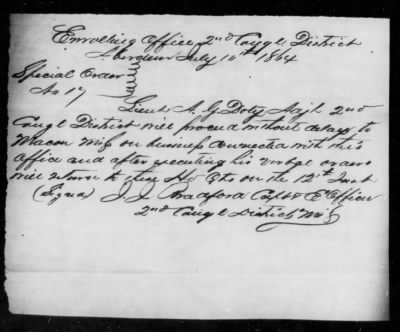 Enrolling Office 2nd Congl District
Aberdeen July 10th 1864
Special Order
No 17
Lieut A. G. Doty Adjt 2nd
Congl District will proceed without delay to
Macon Miss on business connected with this
Office and after executing his verbal orders
will return to these Hd Qtrs on the 12th Inst
(Signed) J. J. Bradford Capt & E Officer
2nd Congl District Miss